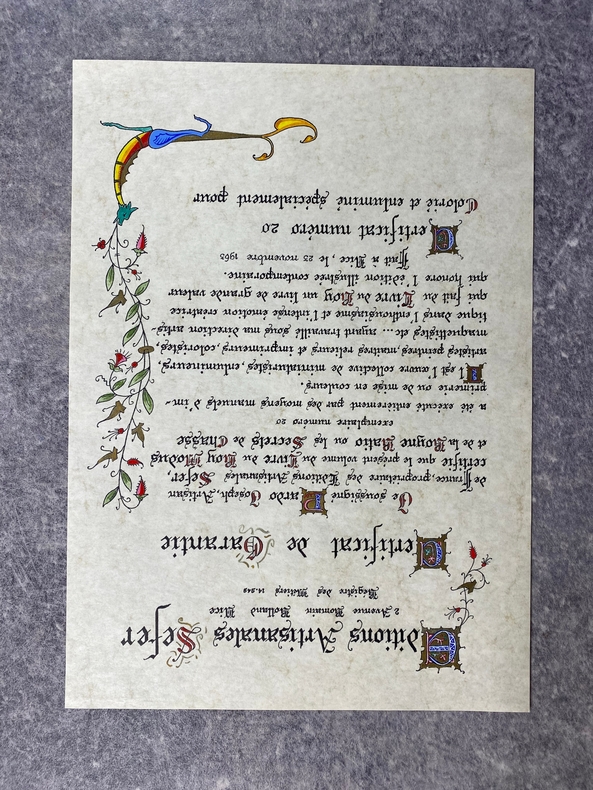 Editions Artisanales Sefer
2 Avenue Romain Rolland Nice
Registre des Métiers 14.949
Certificat de Garantie
Ce soussigné Pardo Joseph, Artisan
de France, propriétaire des Editions Artisanales Sefer
certifie que le présent volume du Livre du Roy Modus
et de la Royne Ratio ou les Secrets de Chasse
exemplaire numéro 20
a été exécuté entièrement par des moyens manuels d'im-
primerie ou de mise en couleurs.
Il est l'œuvre collective de miniaturistes, enlumineurs,
artistes peintres, maîtres relieurs et imprimeurs, coloristes,
maquettistes etc... ayant travaillé sous ma direction artis-
tique dans l'enthousiasme et l'intense émotion créatrice
qui fait du Livre du Roy un livre de grande valeur
qui honore l'édition illustrée contemporaine.
Fait à Nice, le, 25 novembre 1963
Certificat numéro 20
Colorié et enluminé spécialement pour